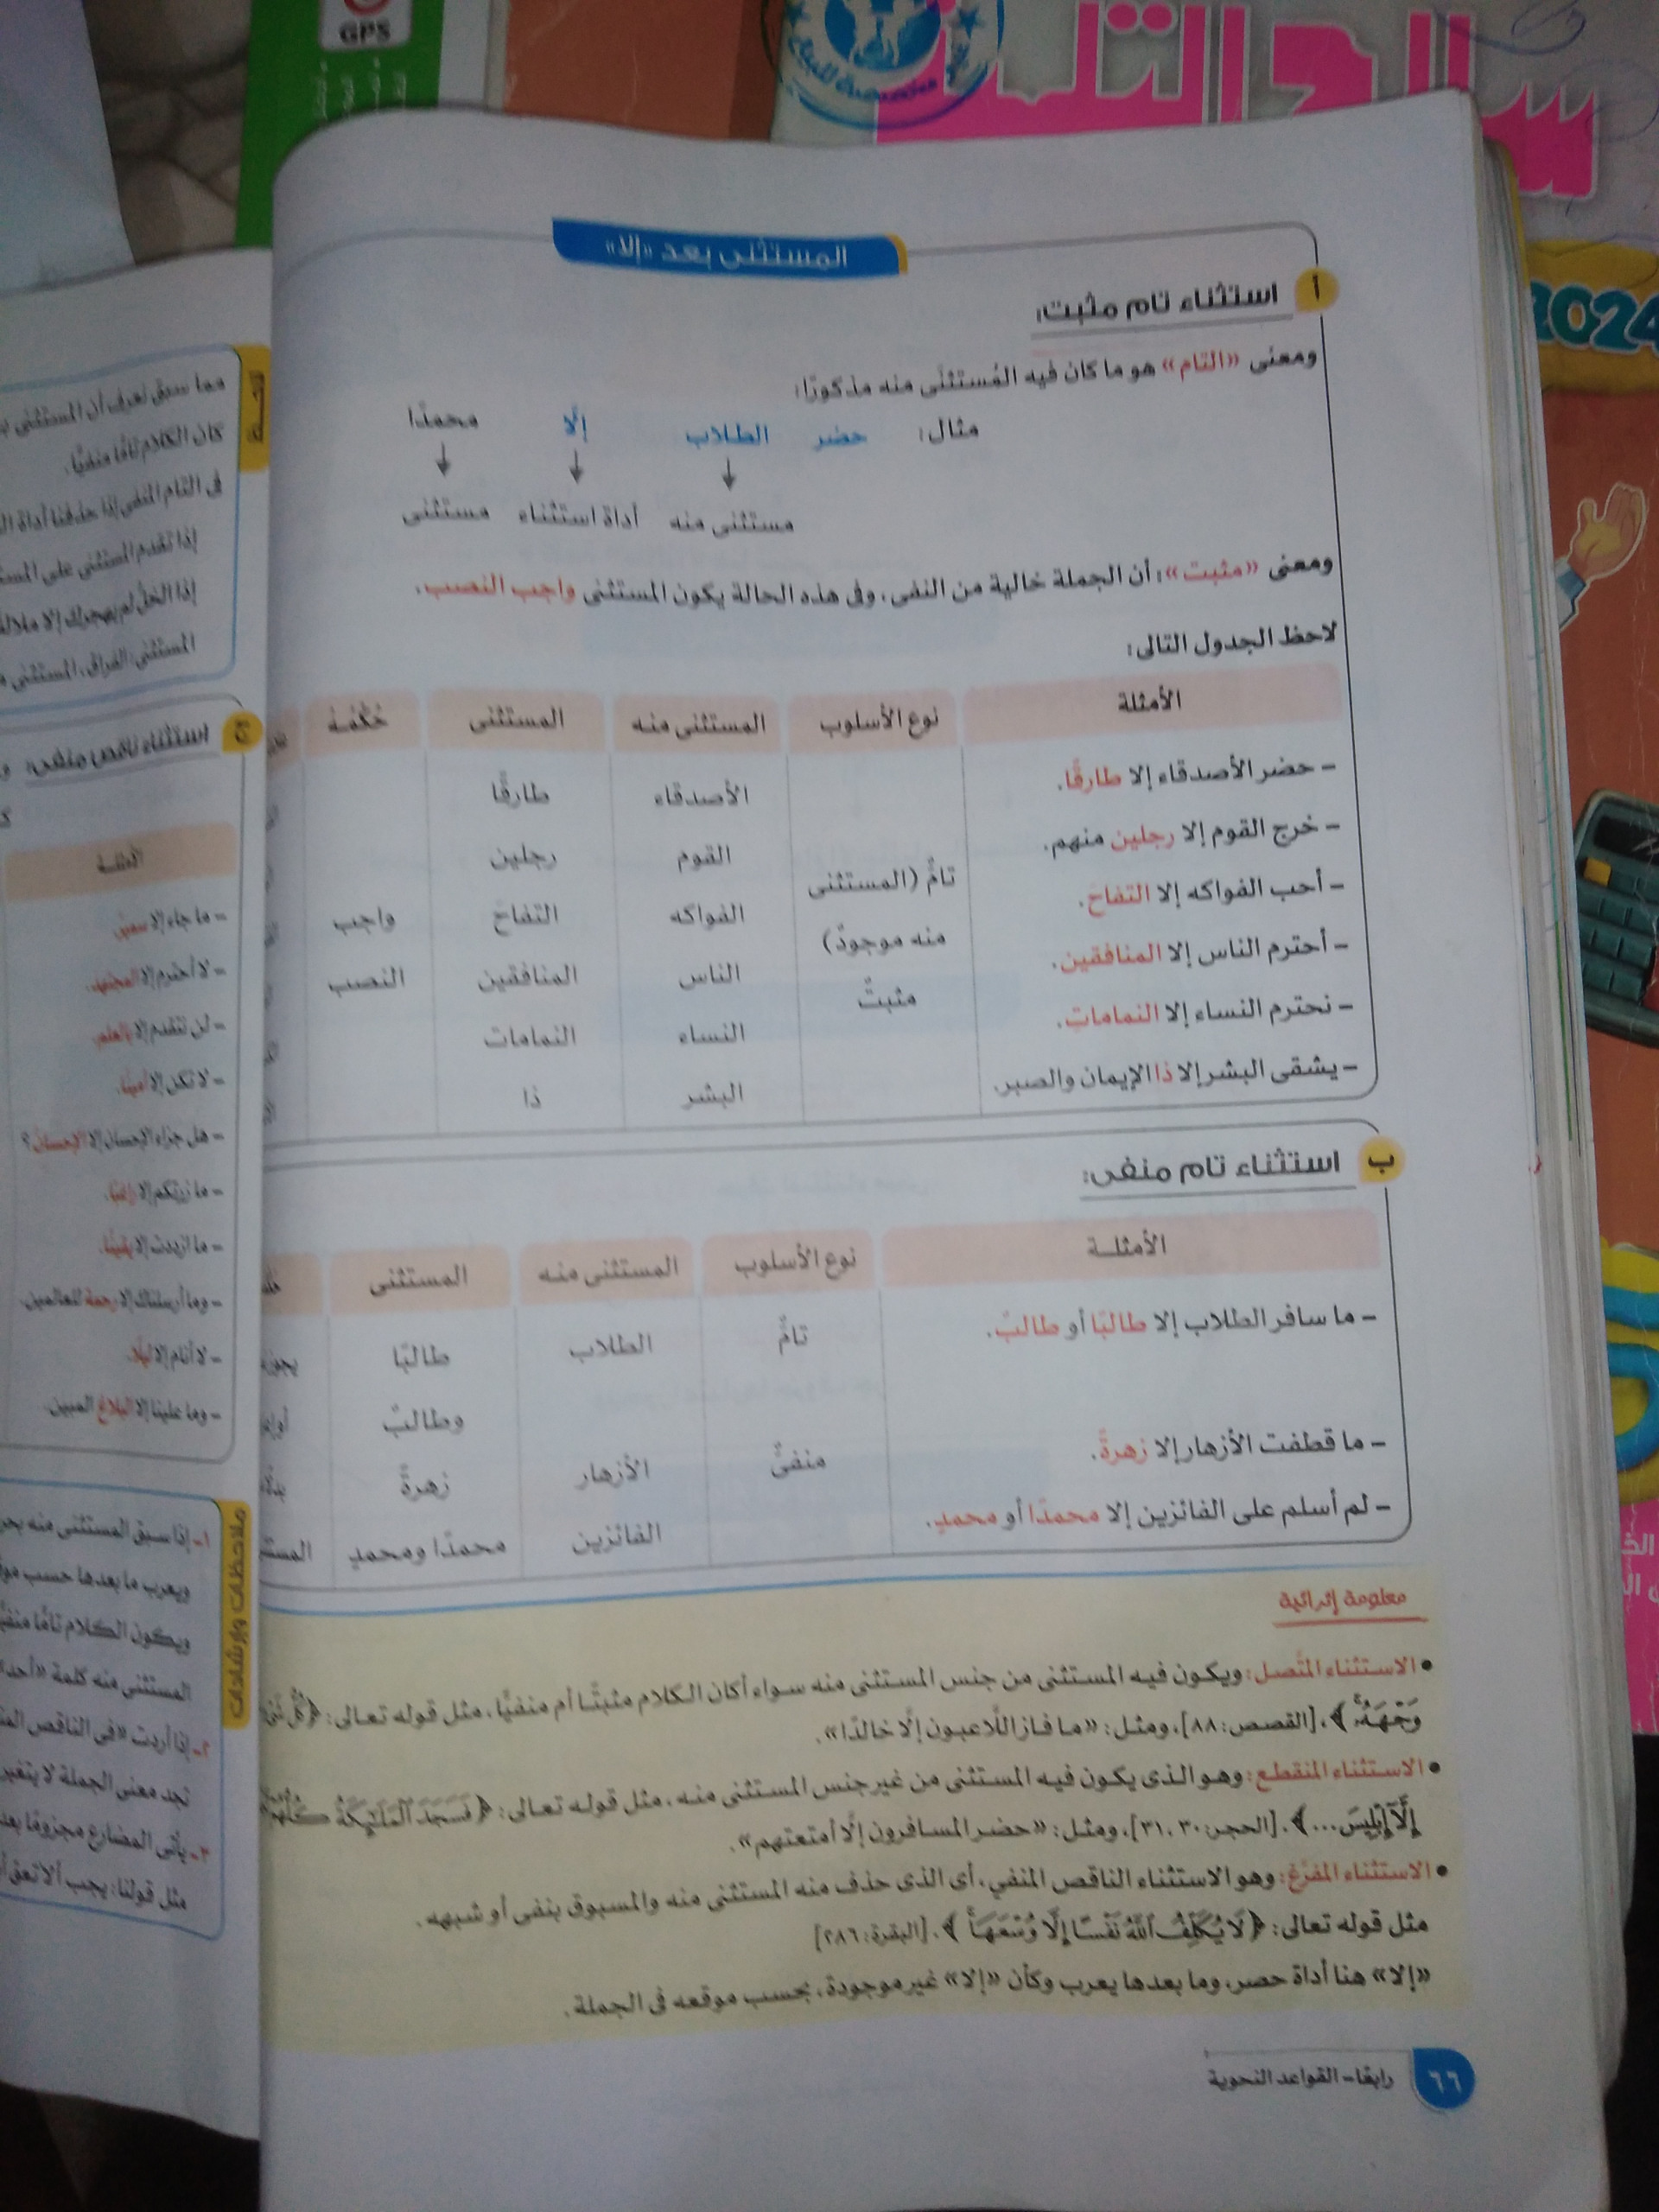 GPS
سلاح التلميذ
2024
المستثنى بعد «إلا»
أ استثناء تام مثبت:
ومعنى «التام» هو ما كان فيه المُستثنَى منه مذكورًا:
مثال: حضر الطلاب إلَّا محمدًا
مستثنى منه أداة استثناء مستثنى
ومعنى «مثبت»: أن الجملة خالية من النفى، وفى هذه الحالة يكون المستثنى واجب النصب.
لاحظ الجدول التالى:
الأمثلة نوع الأسلوب المستثنى منه المستثنى حُكْمُهُ
– حضر الأصدقاء إلا طارقًا. الأصدقاء طارقًا
– خرج القوم إلا رجلين منهم. القوم رجلين
تامٌّ (المستثنى
– أحب الفواكه إلا التفاحَ. الفواكه التفاحَ واجب
منه موجودٌ)
– أحترم الناس إلا المنافقين. الناس المنافقين النصب
مثبتٌ
– نحترم النساء إلا النماماتِ. النساء النمامات
– يشقى البشر إلا ذا الإيمان والصبر. البشر ذا
ب استثناء تام منفى:
الأمثلـة نوع الأسلوب المستثنى منه المستثنى
– ما سافر الطلاب إلا طالبًا أو طالبٌ. تامٌّ الطلاب طالبًا
وطالبٌ
– ما قطفت الأزهار إلا زهرةً. منفىٌّ الأزهار زهرةً
– لم أسلم على الفائزين إلا محمدًا أو محمدٍ. الفائزين محمدًا ومحمدٍ
معلومة إثرائية
• الاستثناء المتَّصل: ويكون فيه المستثنى من جنس المستثنى منه سواء أكان الكلام مثبتًا أم منفيًّا، مثل قوله تعالى: ﴿كُلُّ
وَجْهَهُۥ﴾، [القصص: ٨٨]، ومثل: «ما فاز اللَّاعبون إلَّا خالدًا».
• الاستثناء المنقطع: وهو الذى يكون فيه المستثنى من غير جنس المستثنى منه، مثل قوله تعالى: ﴿فَسَجَدَ ٱلْمَلَٰٓئِكَةُ كُلُّهُمْ
إِلَّآ إِبْلِيسَ...﴾، [الحجر: ٣٠، ٣١]، ومثل: «حضر المسافرون إلَّا أمتعتهم».
• الاستثناء المفرَّغ: وهو الاستثناء الناقص المنفي، أى الذى حذف منه المستثنى منه والمسبوق بنفى أو شبهه.
مثل قوله تعالى: ﴿لَا يُكَلِّفُ ٱللَّهُ نَفْسًا إِلَّا وُسْعَهَا﴾، [البقرة: ٢٨٦]
«إلا» هنا أداة حصر، وما بعدها يعرب وكأن «إلا» غير موجودة، بحسب موقعه فى الجملة.
٦٦ رابعًا– القواعد النحوية
مما سبق نعرف أن المستثنى
كان الكلام تامًّا منفيًّا.
فى التام المنفى إذا حذفنا أداة
إذا تقدم المستثنى على
إذا الخلُّ لم يهجرك إلا ملالة
المستثنى: الفراق، المستثنى
ج استثناء ناقص منفى:
الأمثلـة
– ما جاء إلا سميرٌ.
– لا أحترم إلا المجتهد.
– لن نتقدم إلا بالعلم.
– لا تكن إلا أمينًا.
– هل جزاء الإحسان إلا الإحسان؟
– ما زرتكم إلا راغبًا.
– ما ازددت إلا يقينًا.
– وما أرسلناك إلا رحمة للعالمين.
– لا أنام إلا ليلًا.
– وما علينا إلا البلاغ المبين.
ملاحظات وإرشادات
١- إذا سبق المستثنى منه
ويعرب ما بعدها حسب
ويكون الكلام تامًّا
المستثنى منه كلمة «أحد
٢- إذا أردت «فى الناقص
تجد معنى الجملة لا يتغير
٣- يأتى المضارع مجزومًا
مثل قولنا: يجب ألا تعق